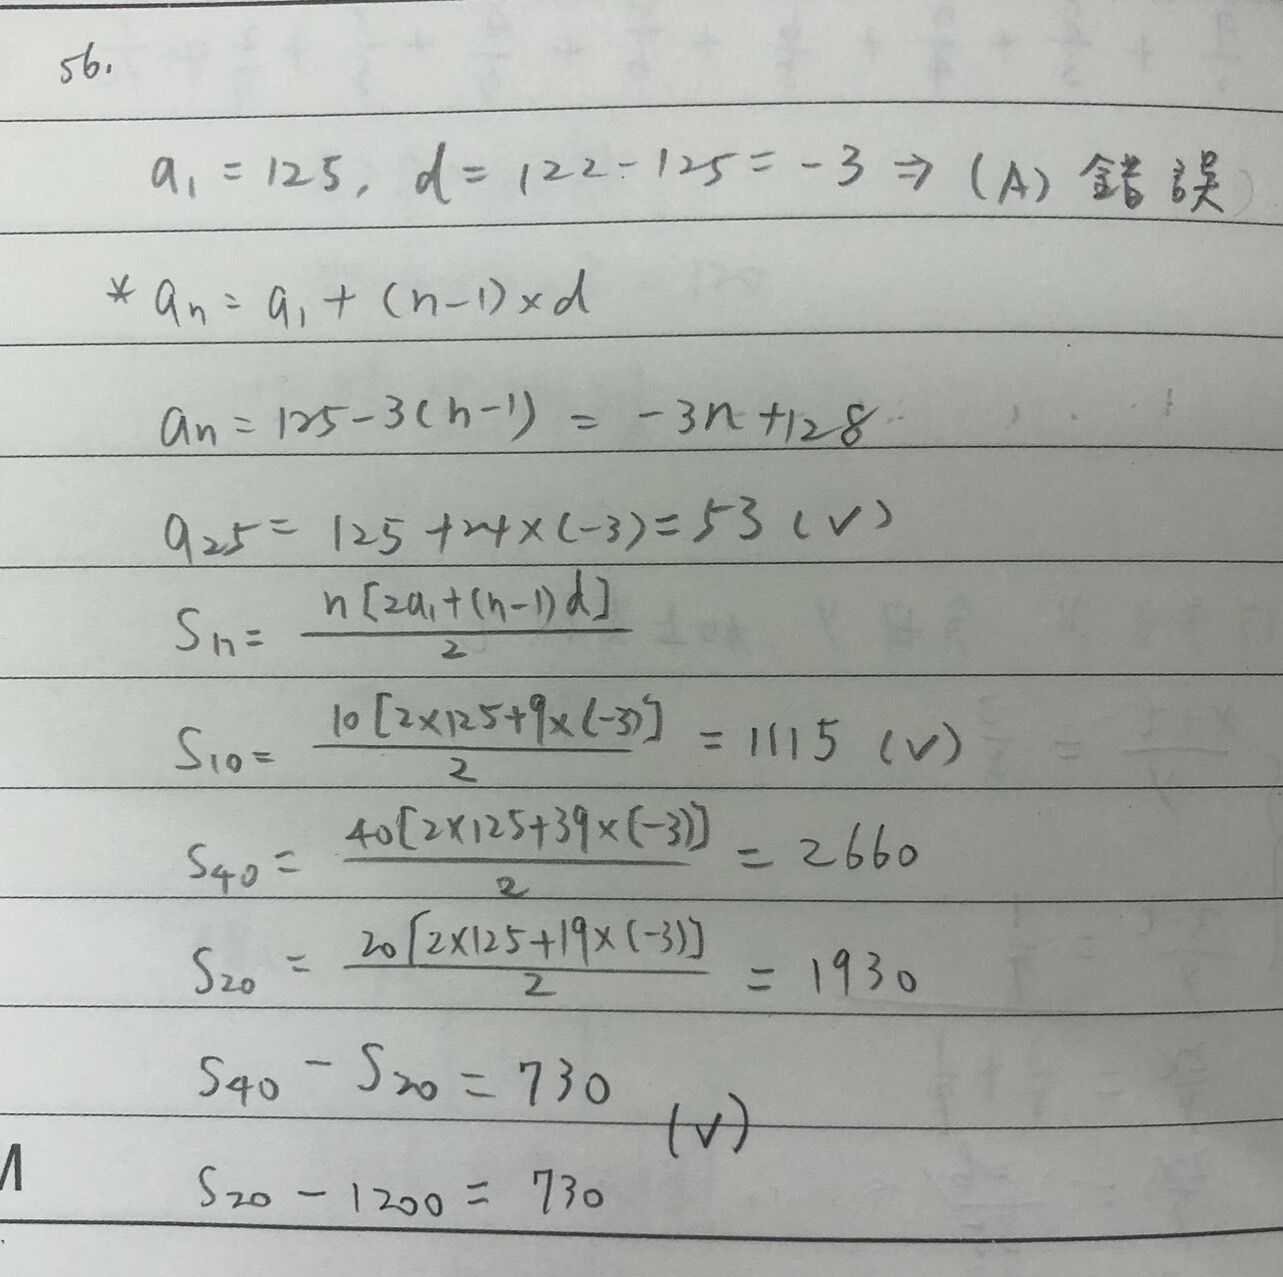 56.
a₁ = 125, d = 122 - 125 = -3 ⇒ (A) 錯誤
* aₙ = a₁ + (n-1)×d
aₙ = 125 - 3(n-1) = -3n + 128
a₂₅ = 125 + 24×(-3) = 53 (v)
Sₙ = n[2a₁+(n-1)d] / 2
S₁₀ = 10[2×125+9×(-3)] / 2 = 1115 (v)
S₄₀ = 40[2×125+39×(-3)] / 2 = 2660
S₂₀ = 20[2×125+19×(-3)] / 2 = 1930
S₄₀ - S₂₀ = 730
(v)
S₂₀ - 1200 = 730